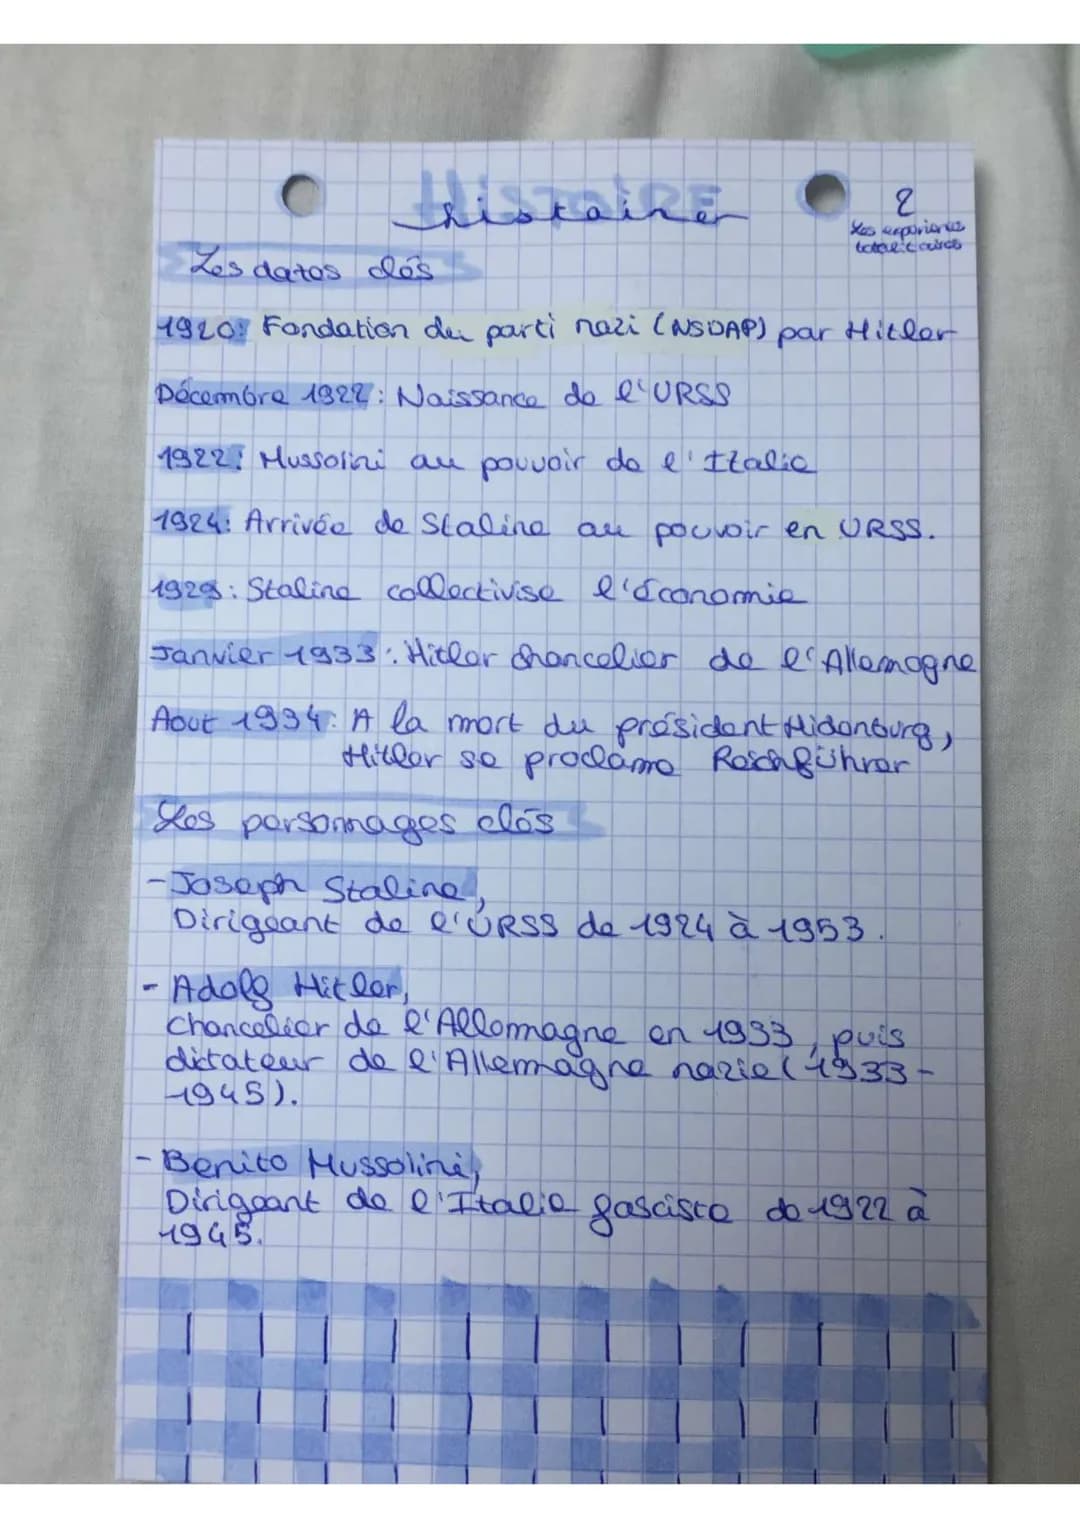 HISTOIRE
histoire
2
Les expériences
totalitaires
Les dates clés
1920: Fondation du parti nazi (NSDAP) par Hitler
Décembre 1922: Naissance de l'URSS
1922: Mussolini au pouvoir de l'Italie
1924: Arrivée de Staline au pouvoir en URSS.
1929: Staline collectivise l'économie
Janvier 1933: Hitler chancelier de l'Allemagne
Aout 1934: A la mort du président Hidenburg,
Hitler se proclame Reichführer
Les personnages clés
- Joseph Staline,
Dirigeant de l'URSS de 1924 à 1953.
- Adolf Hitler,
Chancelier de l'Allemagne en 1933, puis
dictateur de l'Allemagne nazie (1933-
1945).
- Benito Mussolini,
Dirigeant de l'Italie fasciste de 1922 à
1945.